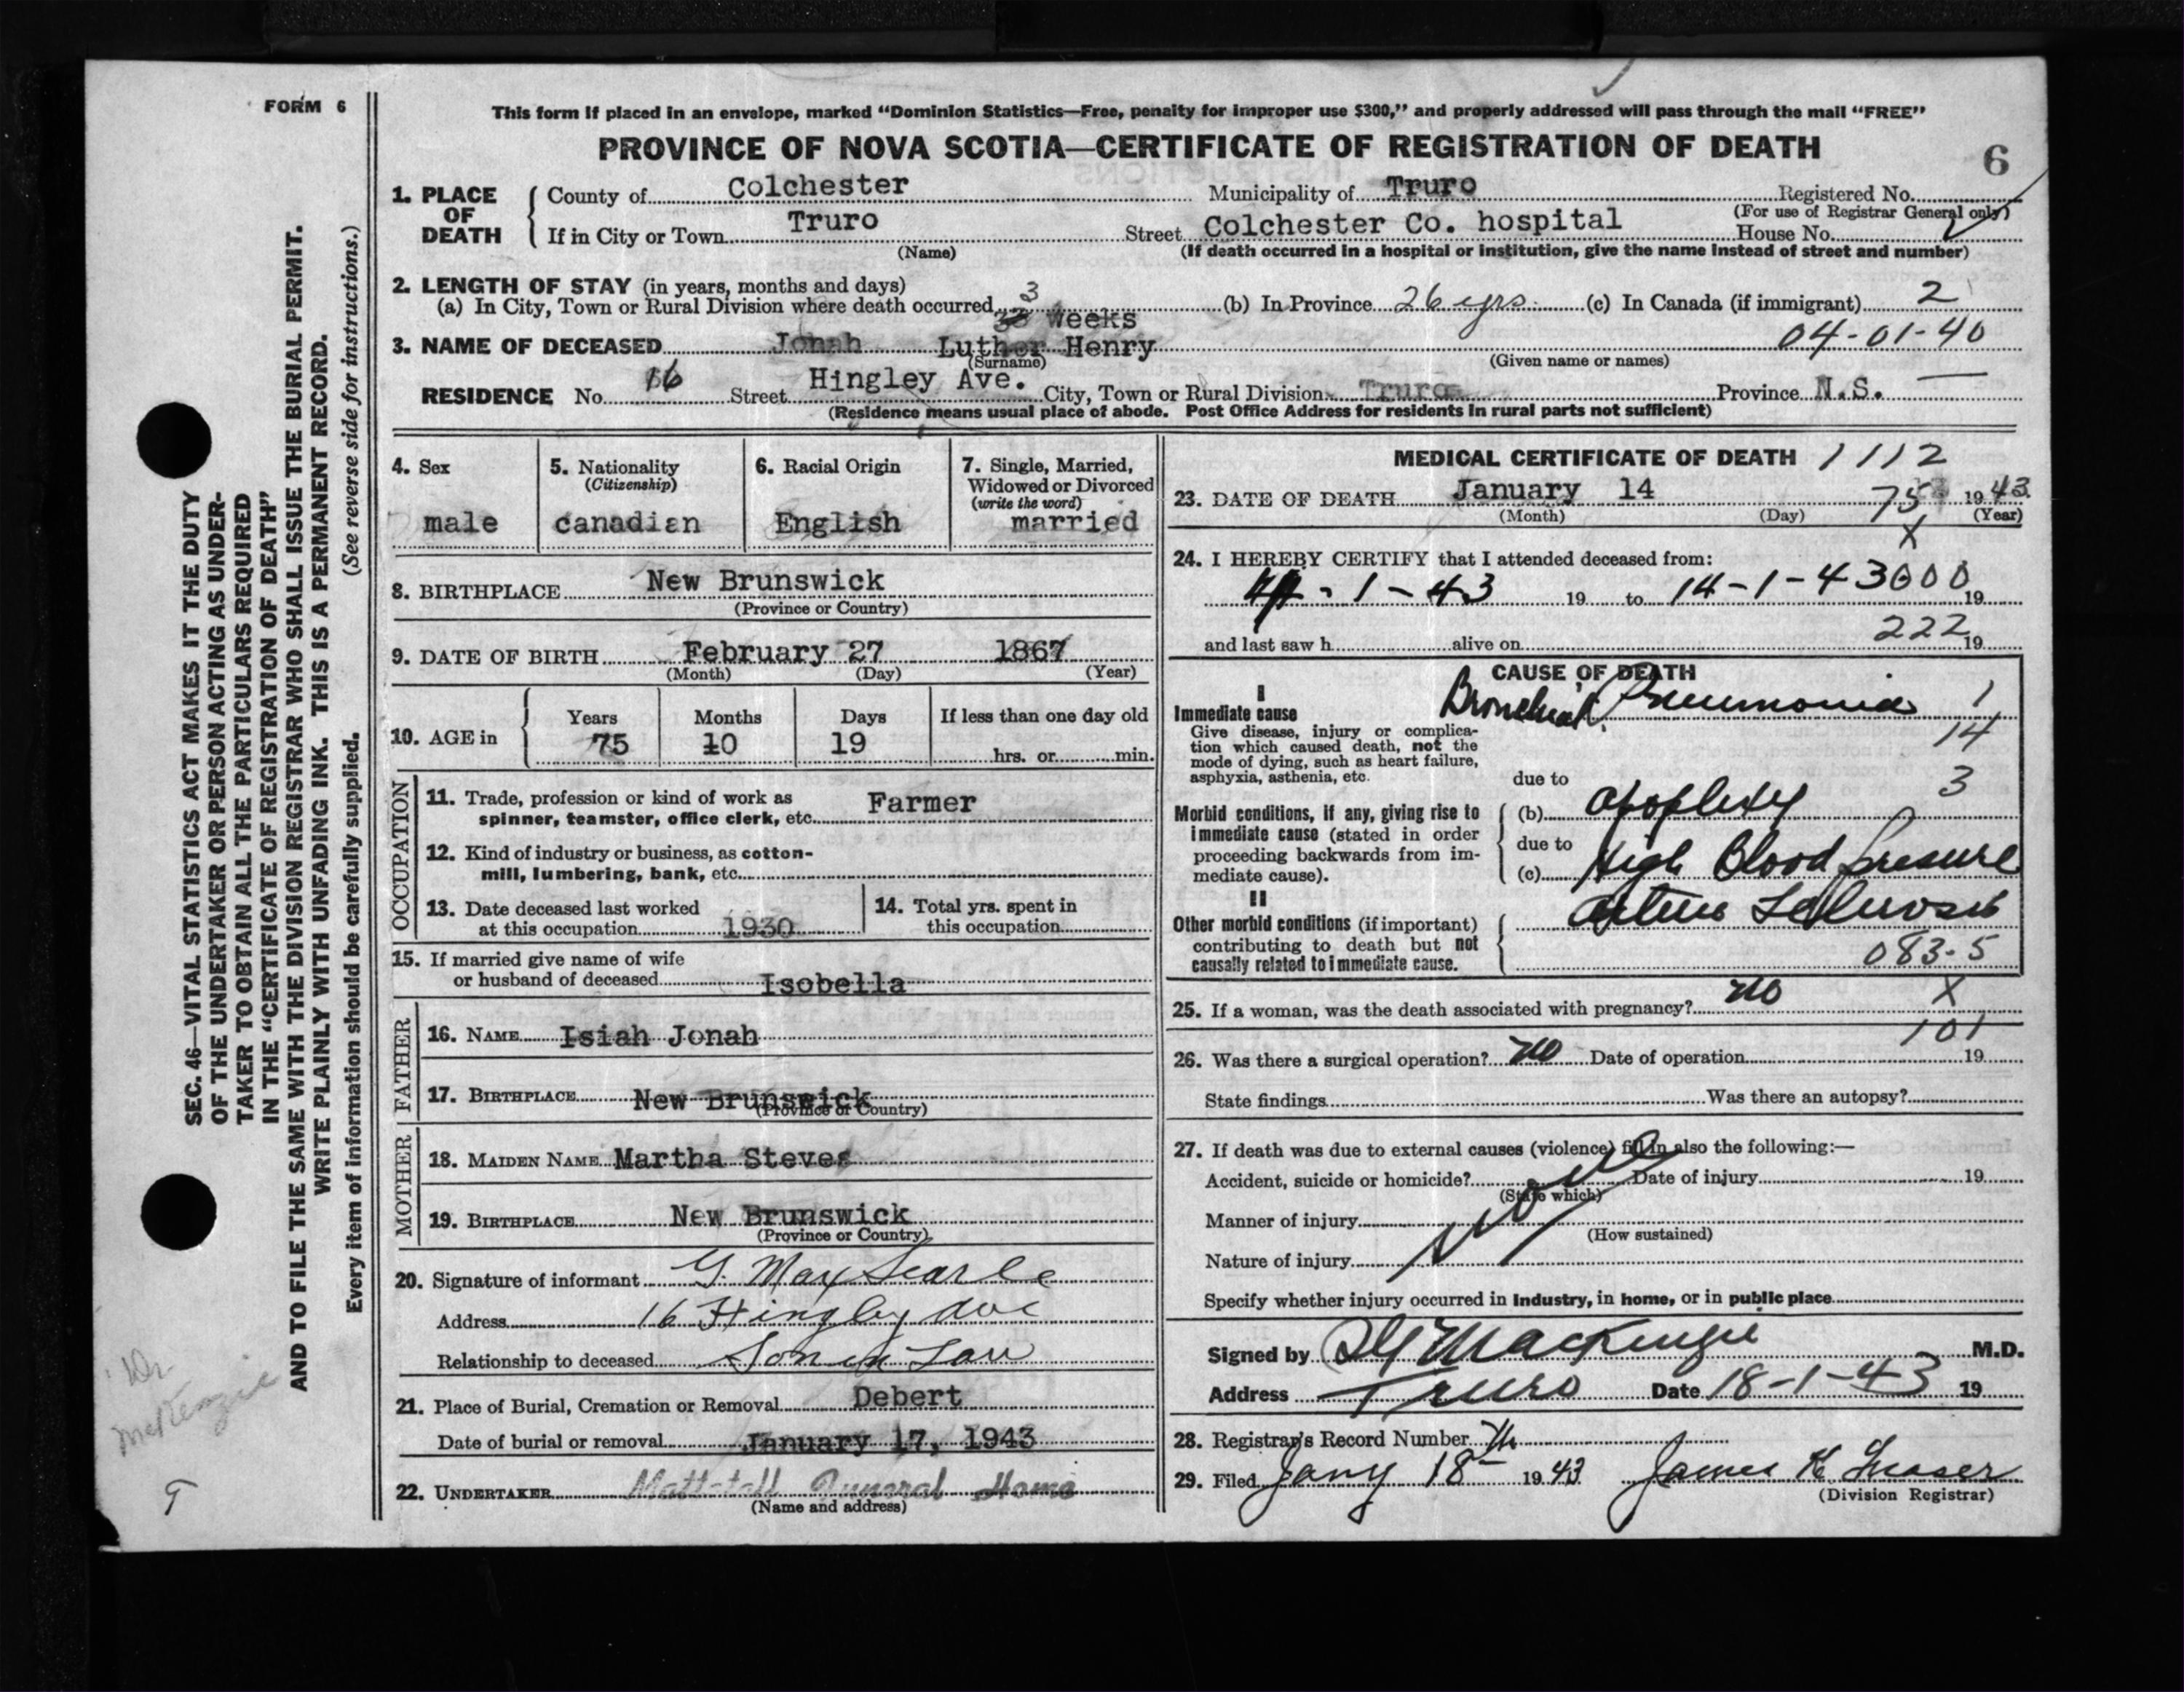 FORM 6
This form if placed in an envelope, marked “Dominion Statistics—Free, penalty for improper use $300,” and properly addressed will pass through the mail “FREE”
PROVINCE OF NOVA SCOTIA—CERTIFICATE OF REGISTRATION OF DEATH
6
1. PLACE OF DEATH { County of Colchester Municipality of Truro Registered No.
(For use of Registrar General only)
If in City or Town Truro Street Colchester Co. hospital House No.
(Name) (If death occurred in a hospital or institution, give the name instead of street and number)
2. LENGTH OF STAY (in years, months and days)
(a) In City, Town or Rural Division where death occurred 3 Weeks (b) In Province 26 yrs. (c) In Canada (if immigrant) 2
04-01-40
3. NAME OF DECEASED Jonah Luther Henry
(Surname) (Given name or names)
RESIDENCE No. 16 Street Hingley Ave. City, Town or Rural Division Truro Province N.S.
(Residence means usual place of abode. Post Office Address for residents in rural parts not sufficient)
4. Sex
male
5. Nationality
(Citizenship)
canadian
6. Racial Origin
English
7. Single, Married, Widowed or Divorced
(write the word)
married
8. BIRTHPLACE New Brunswick
(Province or Country)
9. DATE OF BIRTH February 27 1867
(Month) (Day) (Year)
10. AGE in { Years Months Days If less than one day old
75 10 19 hrs. or min.
OCCUPATION
11. Trade, profession or kind of work as Farmer
spinner, teamster, office clerk, etc.
12. Kind of industry or business, as cotton-
mill, lumbering, bank, etc.
13. Date deceased last worked
at this occupation 1930
14. Total yrs. spent in
this occupation
15. If married give name of wife
or husband of deceased Isobella
FATHER
16. NAME Isiah Jonah
17. BIRTHPLACE New Brunswick
(Province or Country)
MOTHER
18. MAIDEN NAME Martha Steves
19. BIRTHPLACE New Brunswick
(Province or Country)
20. Signature of informant G. Max Searle
Address 16 Hingley Ave
Relationship to deceased Son in Law
21. Place of Burial, Cremation or Removal Debert
Date of burial or removal January 17, 1943
22. UNDERTAKER Mattatall Funeral Home
(Name and address)
MEDICAL CERTIFICATE OF DEATH 1112
23. DATE OF DEATH January 14 75 1943
(Month) (Day) (Year)
X
24. I HEREBY CERTIFY that I attended deceased from:
-1-43 19 to 14-1-43 000 19
222
and last saw h alive on 19
CAUSE OF DEATH
I
Immediate cause Bronchial Pneumonia 1
Give disease, injury or complica-
tion which caused death, not the
mode of dying, such as heart failure,
asphyxia, asthenia, etc.
14
due to 3
Morbid conditions, if any, giving rise to
immediate cause (stated in order
proceeding backwards from im-
mediate cause).
(b) Apoplexy
due to
(c) High Blood Presure
II
Other morbid conditions (if important)
contributing to death but not
causally related to immediate cause.
083-5
25. If a woman, was the death associated with pregnancy? no X
101
26. Was there a surgical operation? no Date of operation 19
State findings Was there an autopsy?
27. If death was due to external causes (violence) fill in also the following:—
Accident, suicide or homicide? Date of injury 19
(State which)
Manner of injury
(How sustained)
Nature of injury
Specify whether injury occurred in Industry, in home, or in public place
Signed by MacKenzie M.D.
Address Truro Date 18-1-43 19
28. Registrar's Record Number
29. Filed Jany 18 1943 James K Fraser
(Division Registrar)
SEC. 46—VITAL STATISTICS ACT MAKES IT THE DUTY
OF THE UNDERTAKER OR PERSON ACTING AS UNDER-
TAKER TO OBTAIN ALL THE PARTICULARS REQUIRED
IN THE “CERTIFICATE OF REGISTRATION OF DEATH”
AND TO FILE THE SAME WITH THE DIVISION REGISTRAR WHO SHALL ISSUE THE BURIAL PERMIT.
WRITE PLAINLY WITH UNFADING INK. THIS IS A PERMANENT RECORD.
Every item of information should be carefully supplied. (See reverse side for instructions.)
Dr.
McKenzie